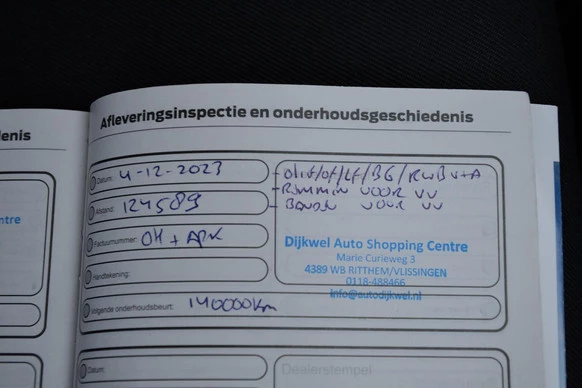 enis
Afleveringsinspectie en onderhoudsgeschiedenis
Datum: 4-12-2023
Afstand: 124589
Factuurnummer: OH + APK
Handtekening:
Volgende onderhoudsbeurt: 140000km
- olie/of/LF/BG/RWB V+A
- Remmen voor VV
- Banden voor VV
Dijkwel Auto Shopping Centre
Marie Curieweg 3
4389 WB RITTHEM/VLISSINGEN
0118-488466
info@autodijkwel.nl
ntre
Datum:
Dealerstempel